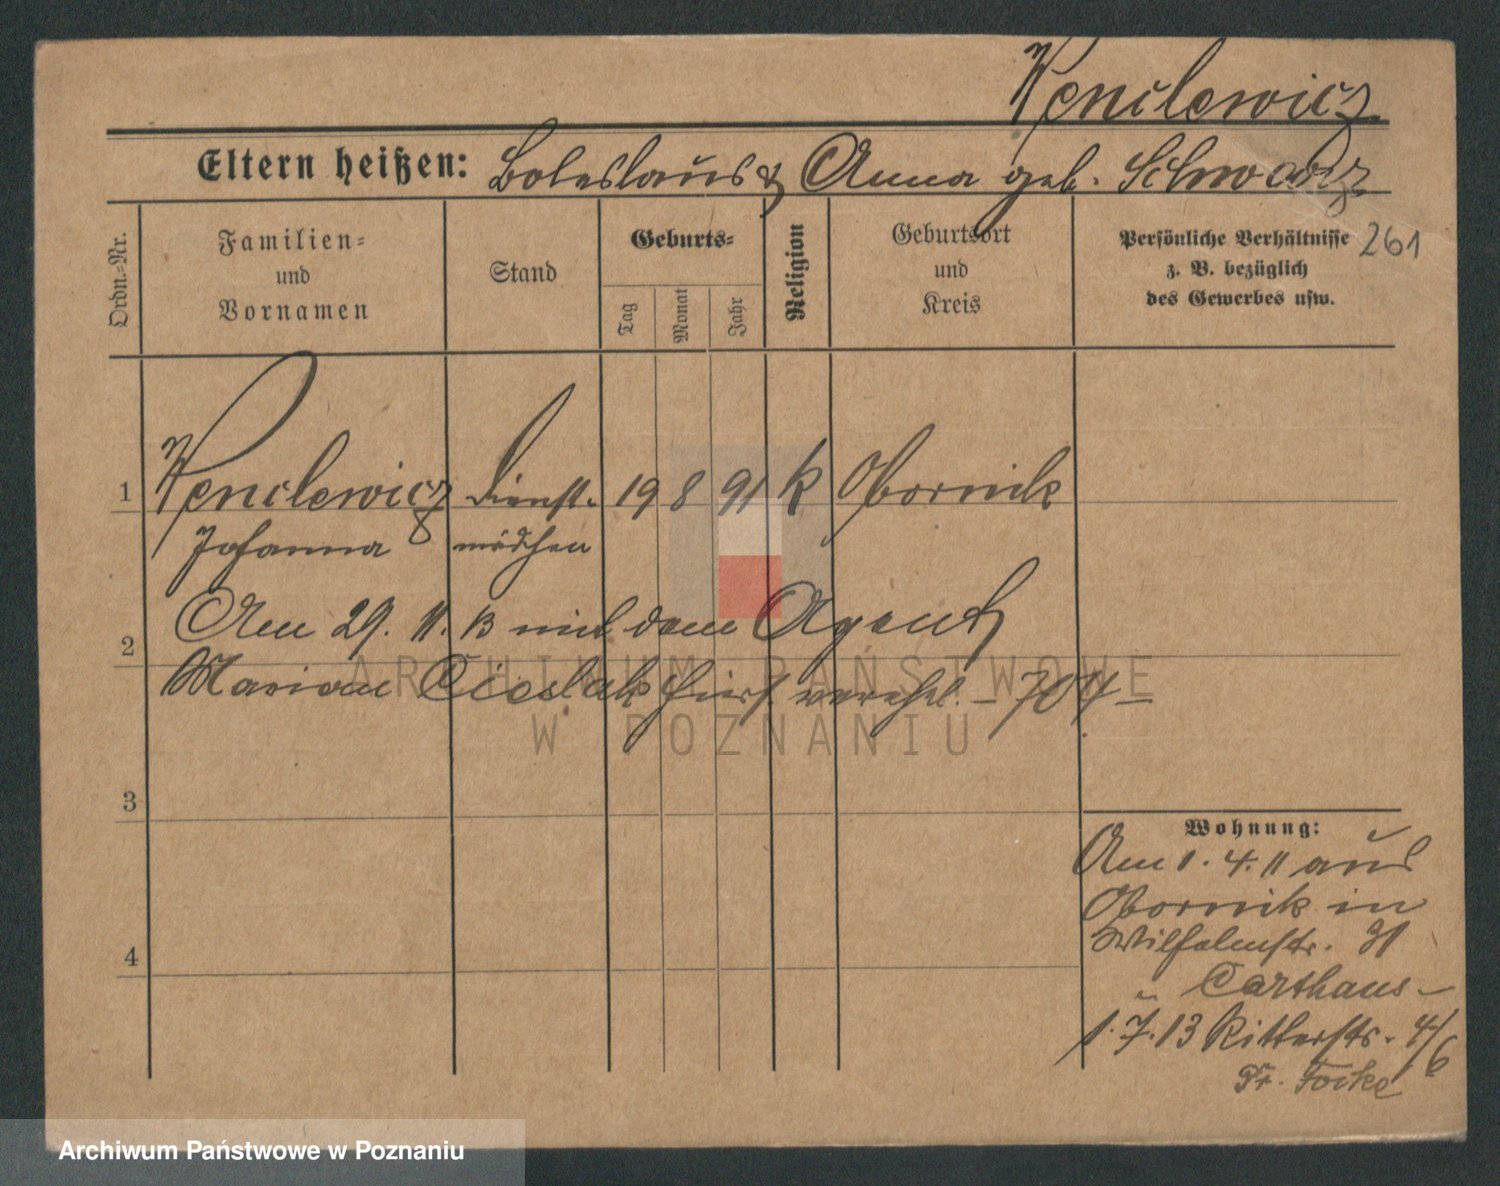 Kencлewicz
Eltern heißen: Boleslaus & Anna geb. Schwarz
Ordn.-Nr.
Familien- und Vornamen
Stand
Geburts-
Tag
Monat
Jahr
Religion
Geburtsort und Kreis
Persönliche Verhältnisse 261
z. B. bezüglich
des Gewerbes usw.
1 Dienst- 19 8 91 k Obornik
Johanna mädchen
2 Am 29. 11. 13 mit dem Agent
Marian Cieslak hier verehel. - 704 -
3
4
Wohnung:
Am 1. 4. 11 aus
Obornik in
Wilhelmstr. 21
Carthaus -
1. 7. 13 Ritterstr. 4/6
Fr. Focke
ARCHIWUM PAŃSTWOWE
W POZNANIU
Archiwum Państwowe w Poznaniu